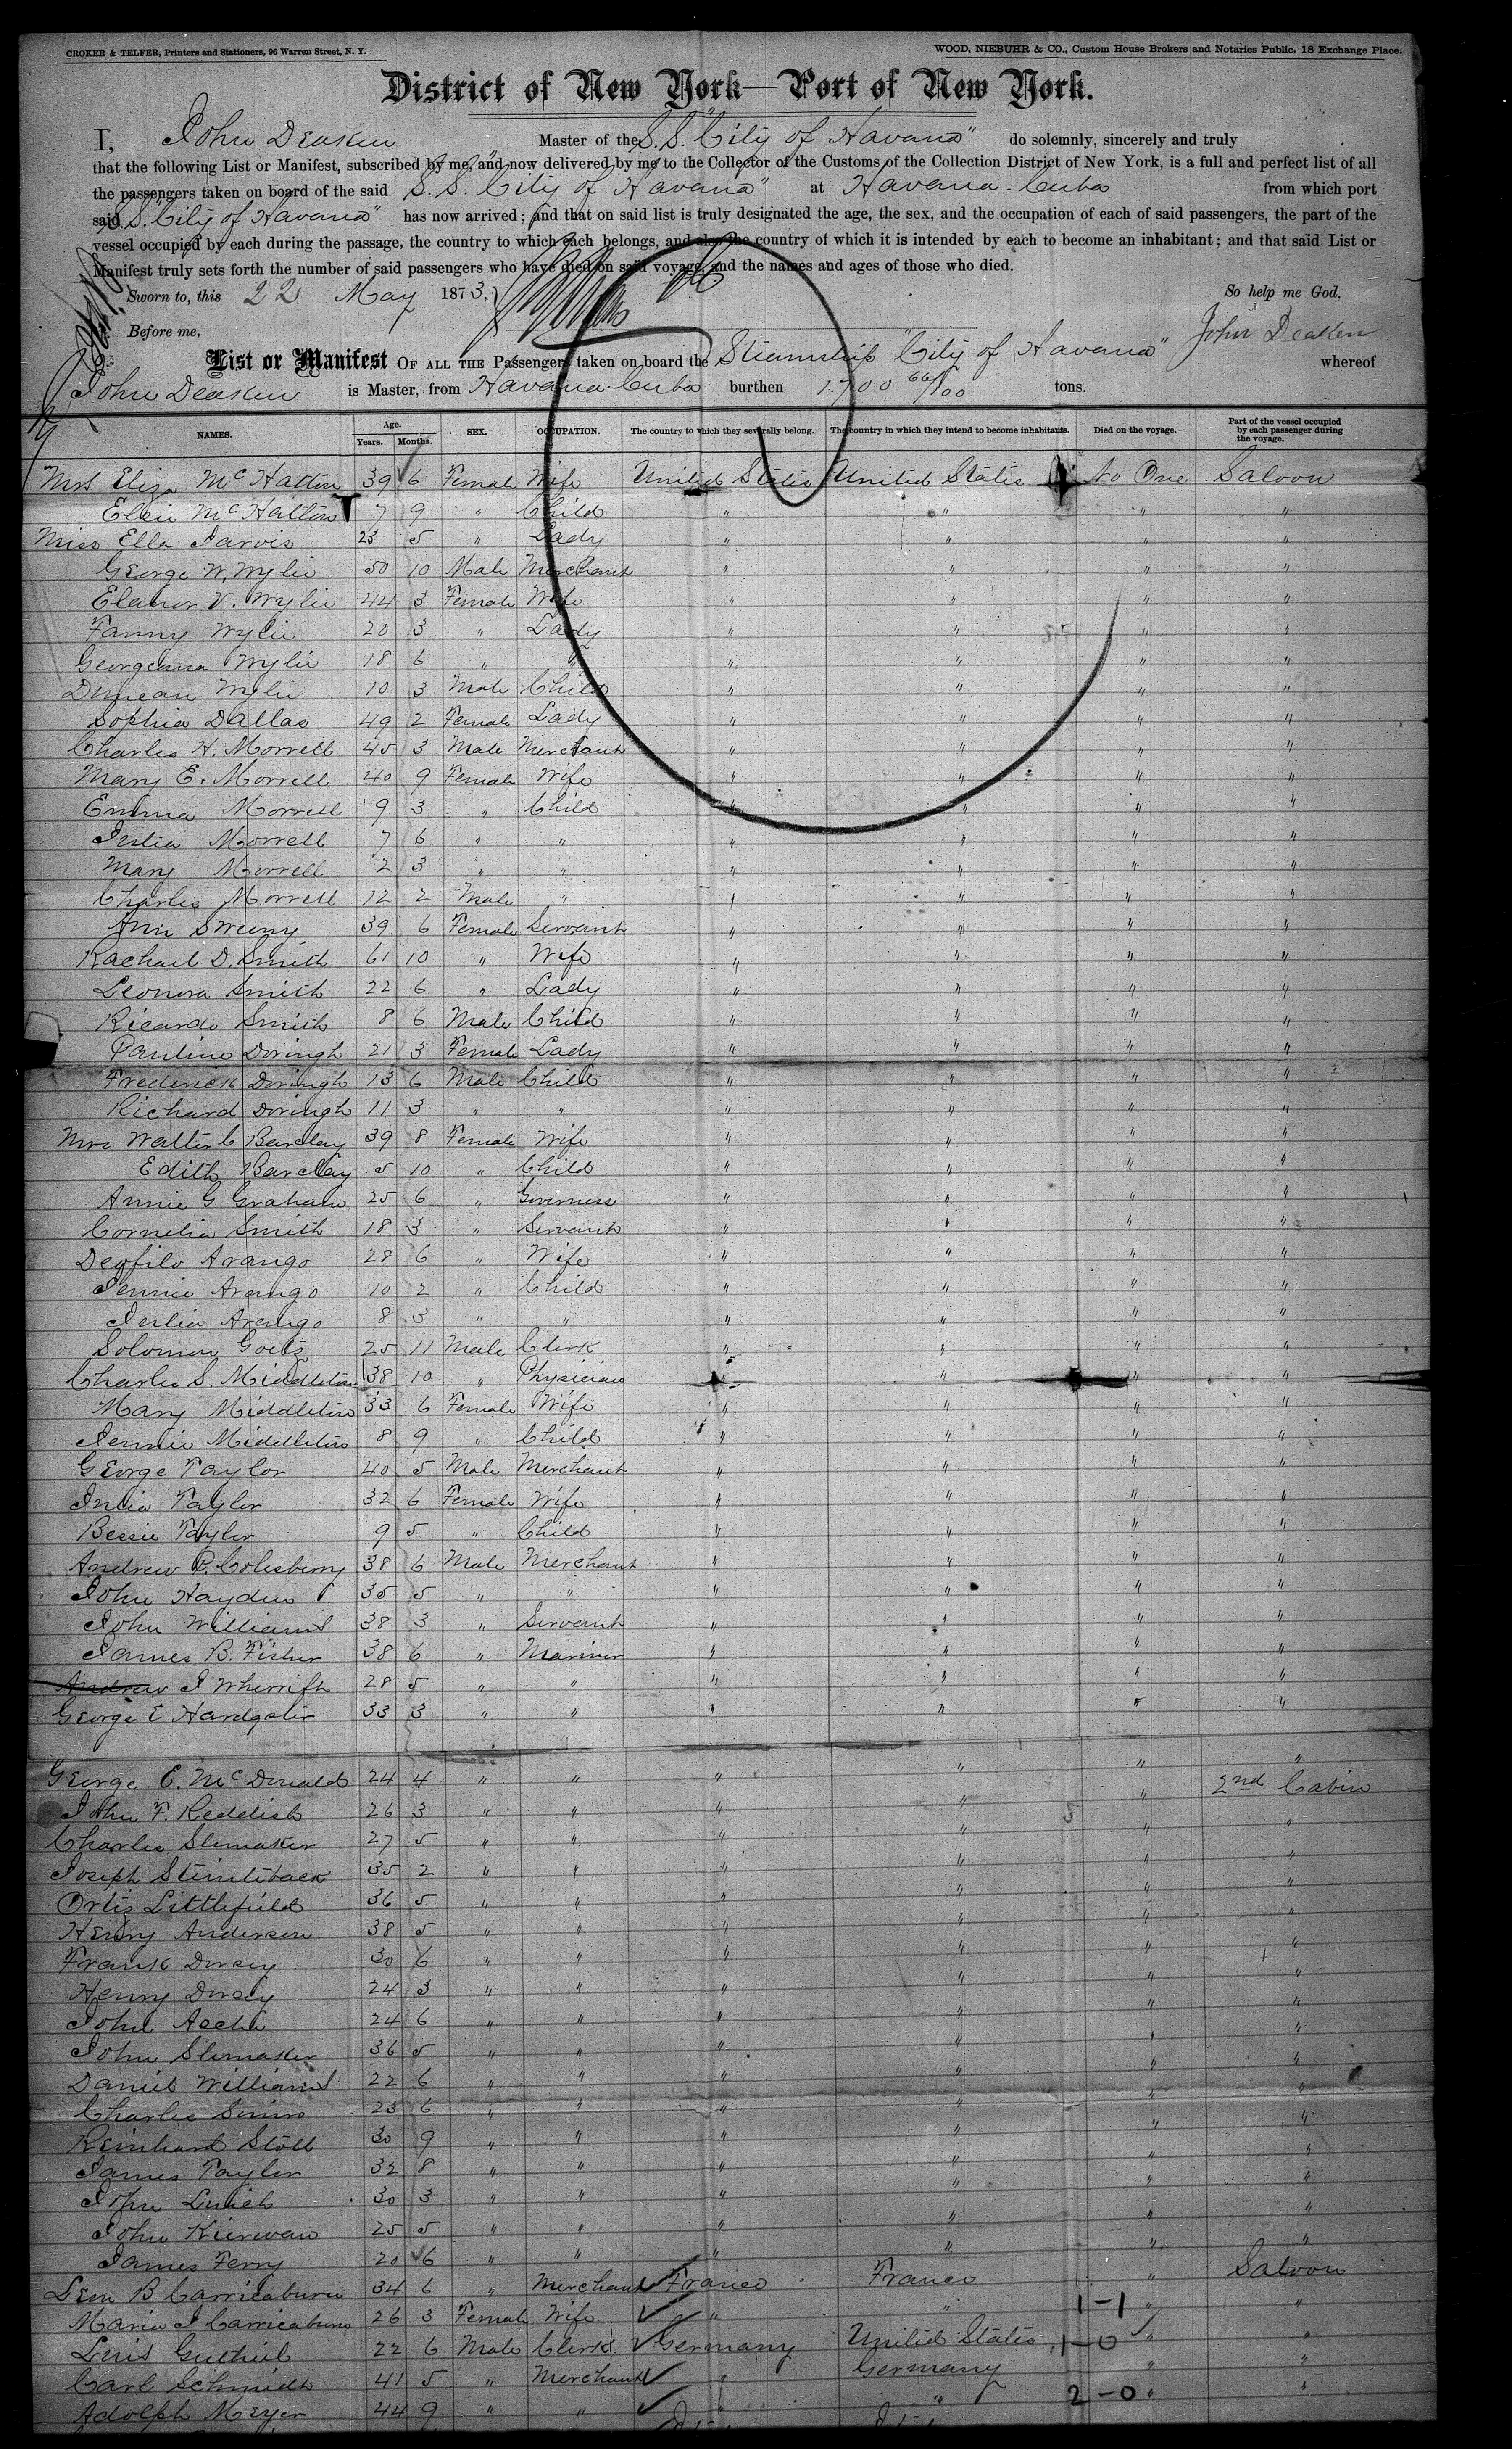 CROKER & TELFER, Printers and Stationers, 96 Warren Street, N. Y. WOOD, NIEBUHR & CO., Custom House Brokers and Notaries Public, 18 Exchange Place.
District of New York—Port of New York.
I, John Deaken Master of the S.S. "City of Havana" do solemnly, sincerely and truly
that the following List or Manifest, subscribed by me, and now delivered by me to the Collector of the Customs of the Collection District of New York, is a full and perfect list of all
the passengers taken on board of the said S. S. "City of Havana" at Havana. Cuba from which port
said S.S. "City of Havana" has now arrived; and that on said list is truly designated the age, the sex, and the occupation of each of said passengers, the part of the
vessel occupied by each during the passage, the country to which each belongs, and also the country of which it is intended by each to become an inhabitant; and that said List or
Manifest truly sets forth the number of said passengers who have died on said voyage, and the names and ages of those who died.
Sworn to, this 22 May 1873, So help me God,
Before me, John Deaken
List or Manifest OF ALL THE Passengers taken on board the Steamship "City of Havana" whereof
John Deaken is Master, from Havana. Cuba burthen 1.700 66/100 tons.
NAMES. Age. Years. Months. SEX. OCCUPATION. The country to which they severally belong. The country in which they intend to become inhabitants. Died on the voyage. Part of the vessel occupied by each passenger during the voyage.
Mrs Eliza McHatton 39 6 Female Wife United States United States No One Saloon
Elsie McHatton 7 9 " Child " " " "
Miss Ella Jarvis 23 5 " Lady " " " "
George W. Wylie 50 10 Male Merchant " " " "
Elanor V. Wylie 44 3 Female Wife " " " "
Fanny Wylie 20 3 " Lady " " " "
Georgeanna Wylie 18 6 " " " " " "
Duncan Wylie 10 3 Male Child " " " "
Sophia Dallas 49 2 Female Lady " " " "
Charles H. Morrell 45 3 Male Merchant " " " "
Mary E. Morrell 40 9 Female Wife " " " "
Emma Morrell 9 3 " Child " " " "
Julia Morrell 7 6 " " " " " "
Mary Morrell 2 3 " " " " " "
Charles Morrell 12 2 Male " " " " "
Ann Sweeny 39 6 Female Servant " " " "
Rachael D. Smith 61 10 " Wife " " " "
Leonora Smith 22 6 " Lady " " " "
Ricardo Smith 8 6 Male Child " " " "
Pauline Doringh 21 3 Female Lady " " " "
Frederick Doringh 13 6 Male Child " " " "
Richard Doringh 11 3 " " " " " "
Mrs Walter C Barclay 39 8 Female Wife " " " "
Edith Barclay 5 10 " Child " " " "
Annie G Graham 25 6 " Governess " " " "
Cornelia Smith 18 3 " Servant " " " "
Deofilo Arango 28 6 " Wife " " " "
Jennie Arango 10 2 " Child " " " "
Julia Arango 8 3 " " " " " "
Solomon Goetz 25 11 Male Clerk " " " "
Charles S. Middleton 38 10 " Physician " " " "
Mary Middleton 33 6 Female Wife " " " "
Jennie Middleton 8 9 " Child " " " "
George Taylor 40 5 Male Merchant " " " "
Julia Taylor 32 6 Female Wife " " " "
Bessie Taylor 9 5 " Child " " " "
Andrew P. Colesberry 38 6 Male Merchant " " " "
John Hayden 35 5 " " " " " "
John Williams 38 3 " Servant " " " "
James B. Fisher 38 6 " Mariner " " " "
Andrew J 28 5 " " " " " "
George E 33 3 " " " " " "
George E. McDonald 24 4 " " " " " "
John F. Reddish 26 3 " " " " " 2nd Cabin
Charles Slemaker 27 5 " " " " " "
Joseph 35 2 " " " " " "
Ortiz Littlefield 36 5 " " " " " "
Henry Anderson 38 5 " " " " " "
Frank Dorsey 30 6 " " " " " "
Henry Dorsey 24 3 " " " " " "
John 24 6 " " " " " "
John Slemaker 36 5 " " " " " "
Daniel Williams 22 6 " " " " " "
Charles 23 6 " " " " " "
Reinhart Stoll 30 9 " " " " " "
James Taylor 32 8 " " " " " "
John 30 3 " " " " " "
John Kierwan 25 5 " " " " " "
James Ferry 20 6 " " " " " "
Leon B Carricaburu 34 6 " Merchant France France " Saloon
Maria J Carricaburu 26 3 Female Wife " " 1-1 " "
Luis 22 6 Male Clerk Germany United States 1-0 " "
Carl Schmidt 41 5 " Merchant " Germany " "
Adolph Meyer 44 9 " " " " 2-0 " "